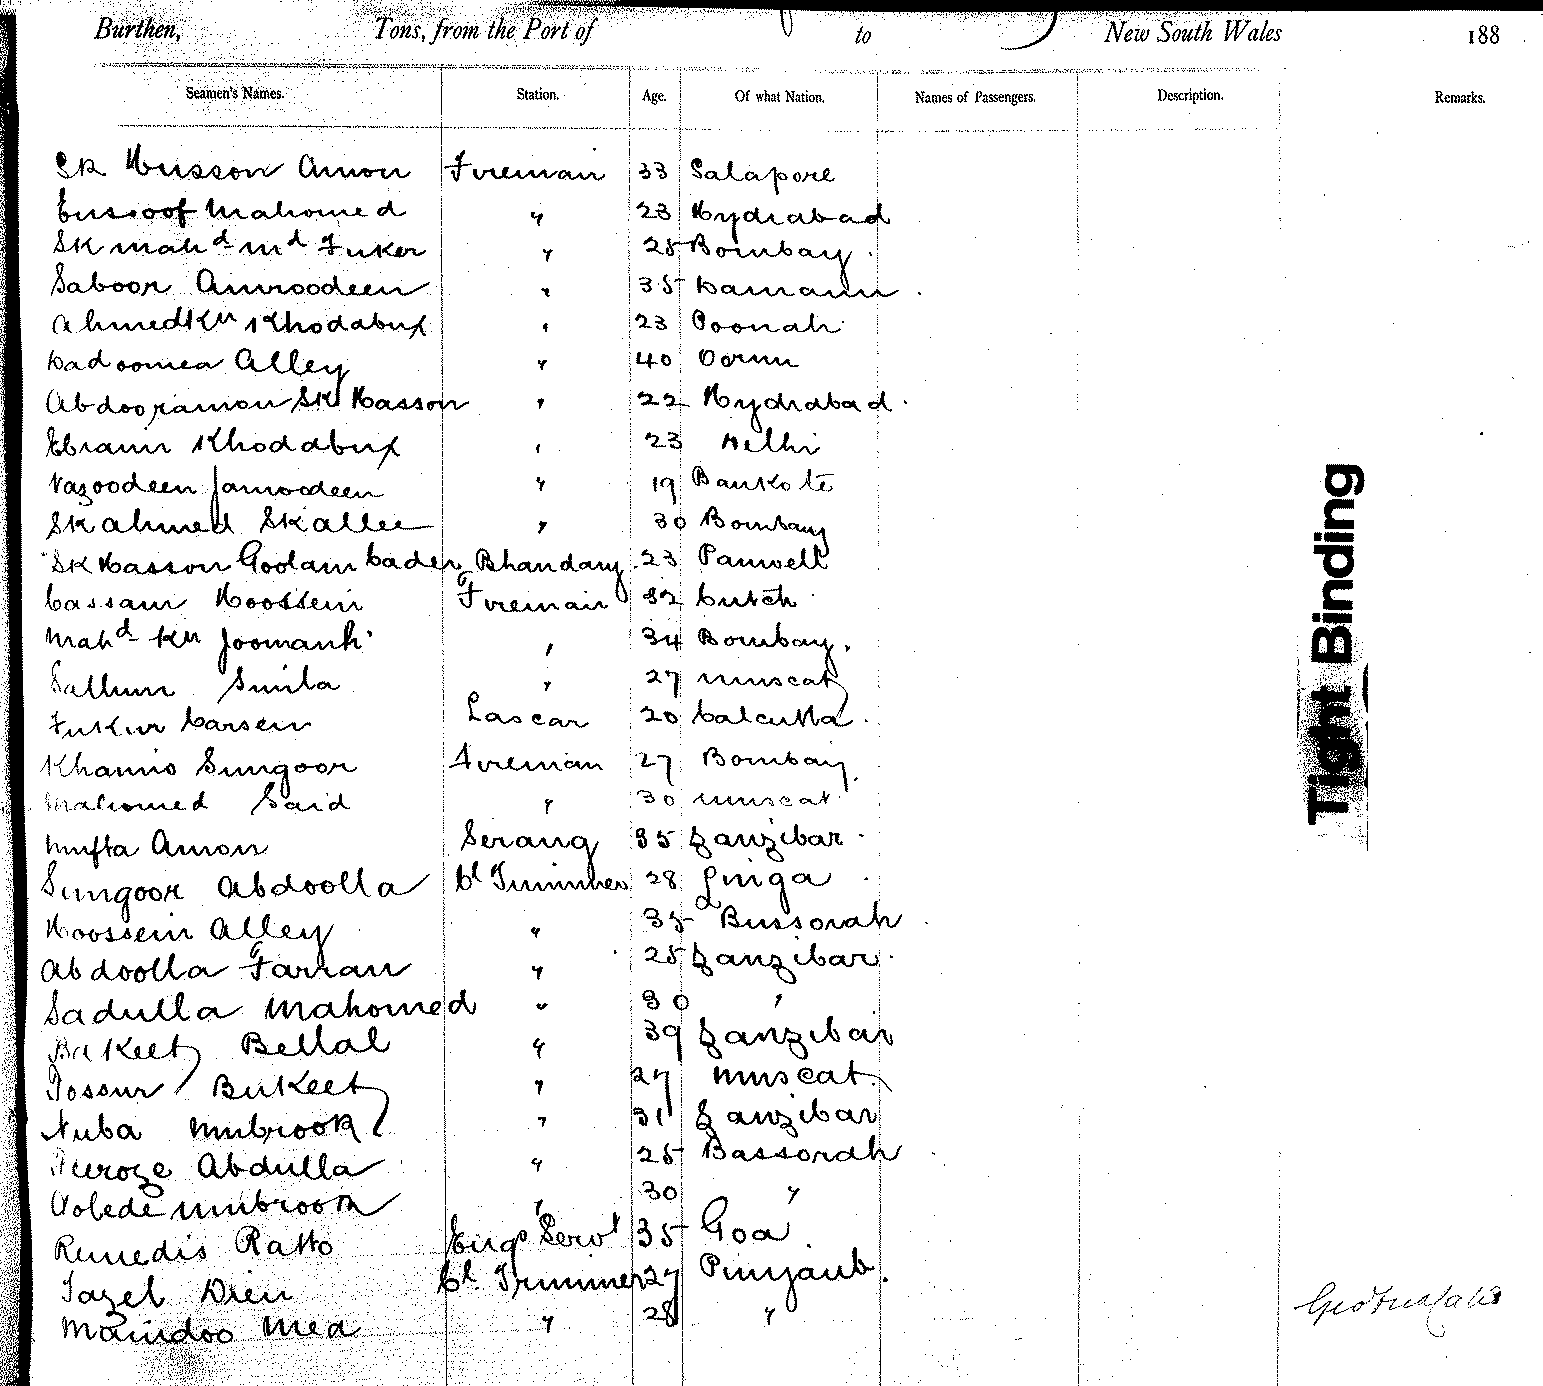 Burthen, Tons, from the Port of to New South Wales 188
Seamen's Names. Station. Age. Of what Nation. Names of Passengers. Description. Remarks.
Sk Husson Amon Fireman 33 Salapore
Eussoof Mahomed " 23 Hydrabad
Sk mahd md Fuker " 25 Bombay
Saboor Amroodeen " 35 Damann
Ahmedkn Khodabux " 23 Poonah
Dadoomea Alley " 40
Abdooramon Sk Hasson " 22 Hydrabad
Ebraim Khodabux " 23 Delhi
Vazoodeen Jamoodeen " 19 Bankote
Sk ahmed Sk allee " 30 Bombay
Sk Hasson Goolam Cader Bhandary 23 Panwell
Cassam Hoossein Fireman 32 Cutch
Mahd kn Joomanh " 34 Bombay.
Sallum Smila " 27 Muscat
Fukur Carsem Lascar 20 Calcutta
Khamis Sungoor Fireman 27 Bombay
Mahomed Said " 30 Muscat
Mufta Amon Serang 35 Zanzibar
Sungoor Abdoolla Cl Trimmer 28 Linga
Hoossein Alley " 35 Bussorah
Abdoolla Farran " 25 Zanzibar
Sadulla Mahomed " 30 "
Bukeet Bellal " 39 Zanzibar
Bukeet " 27 Muscat
Nuba Mubrook " 31 Zanzibar
Feroze Abdulla " 25 Bassorah
Mubrook " 30 "
Remedis Ratto Engs Servt 35 Goa
Fazel Dien Cl Trimmer 27 Punjaub.
Mamdoo Mea " 28 "
Tight Binding